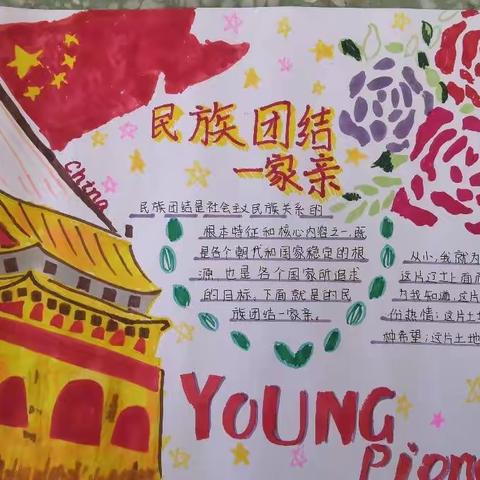 China
民族团结
一家亲
民族团结是社会主义民族关系的
根本特征和核心内容之一,既
是各个朝代和国家稳定的根
源,也是各个国家所追求
的目标。下面就是的民
族团结一家亲。
从小,我就为
这片辽土上面而
为我知道,这片
份热情;这片土地
种希望;这片土地
YOUNG
Pion